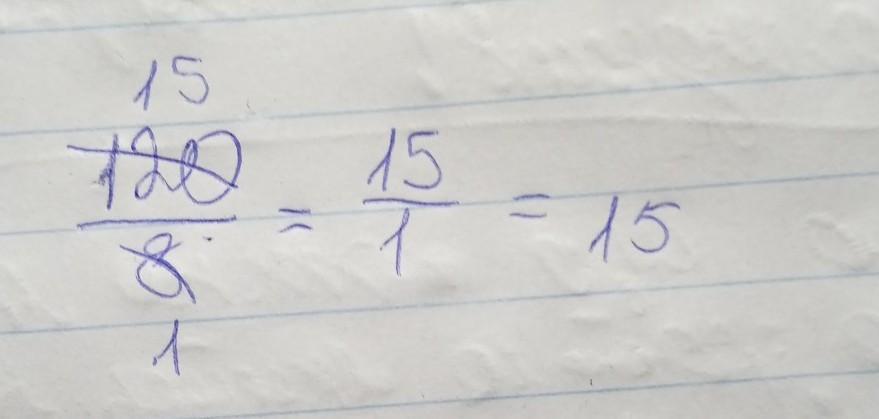 15
120/8 = 15/1 = 15
1